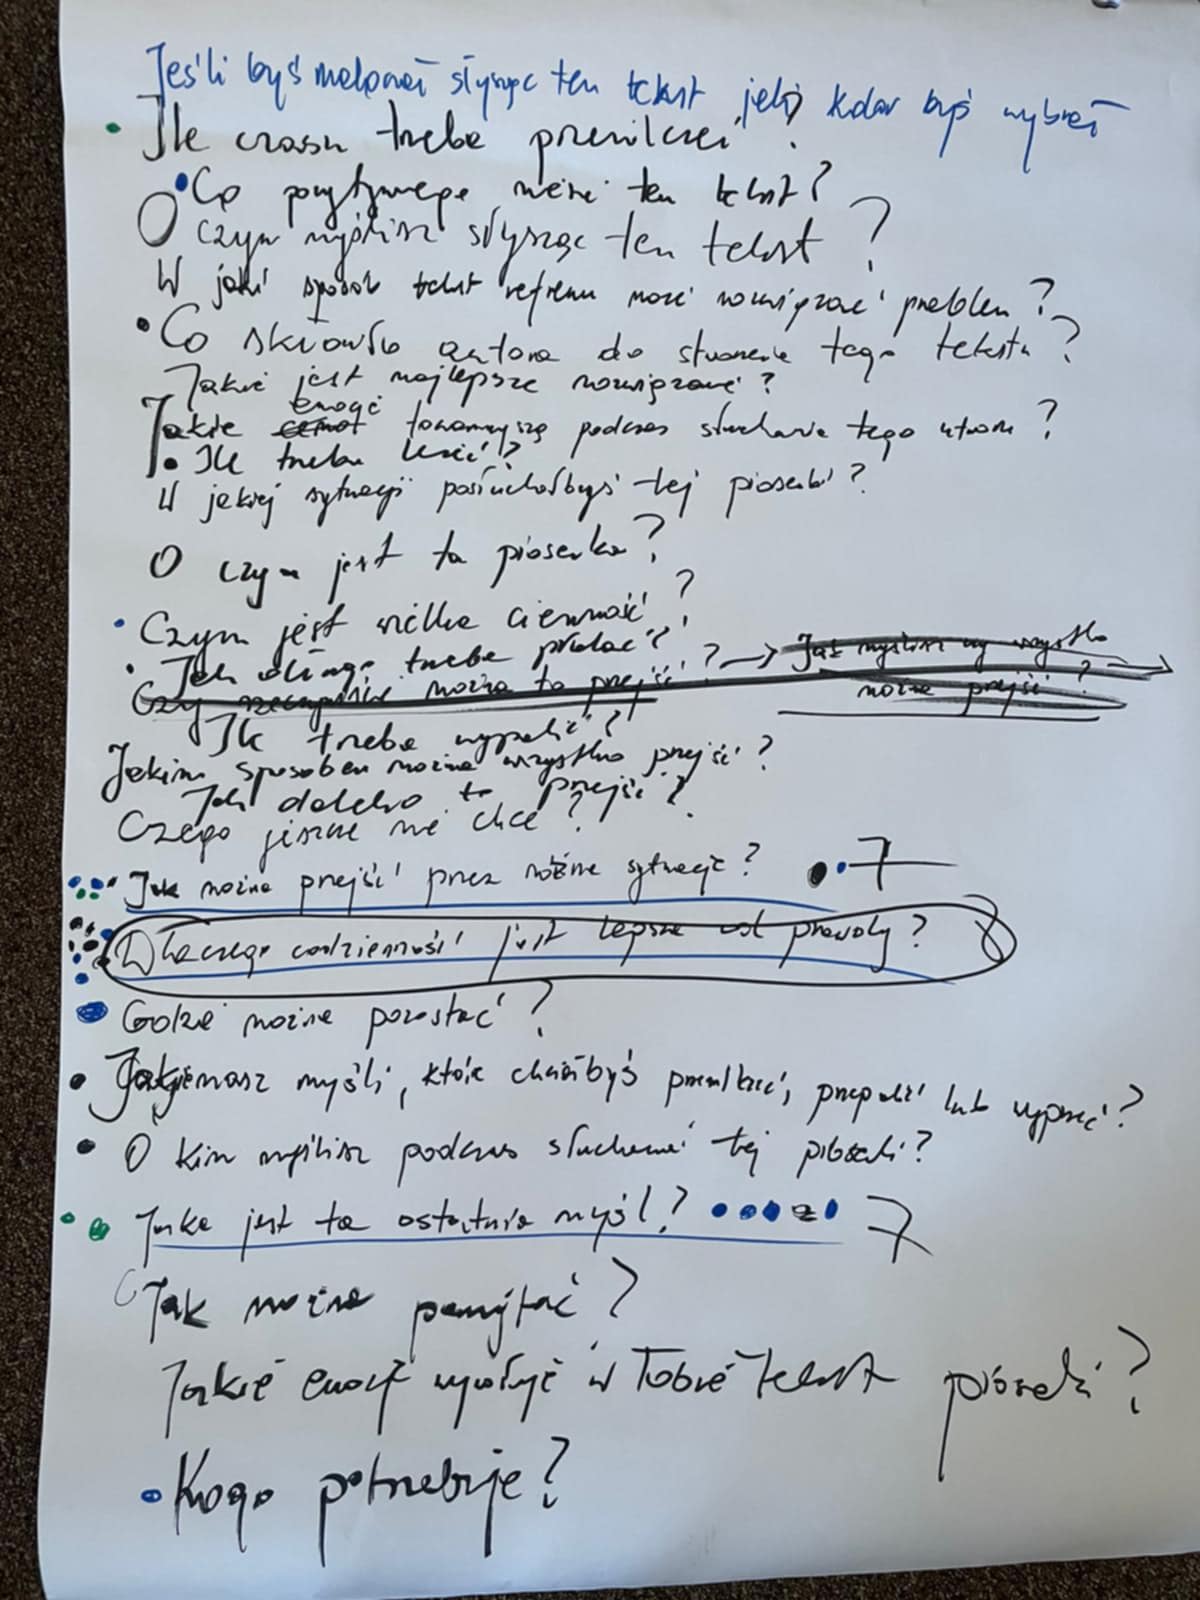 Jeśli byś malował słysząc ten tekst jaki kolor byś wybrał
Ile czasu trzeba przemilczeć?
Co pozytywnego wnosi ten tekst?
O czym myślisz słysząc ten tekst?
W jaki sposób tekst refrenu może rozwiązać problem?
Co skłoniło autora do stworzenia tego tekstu?
Jakie jest najlepsze rozwiązanie?
Jakie emocje towarzyszą podczas słuchania tego utworu?
Ile trzeba
W jakiej sytuacji posłuchałbyś tej piosenki?
O czym jest ta piosenka?
Czym jest wielka ciemność?
Jak długo trzeba
Czy można to przejść? → Jak myślisz czy wszystko
można przejść?
Ile trzeba
Jakim sposobem można wszystko przejść?
Jak daleko to przejść?
Czego jeszcze nie chce?
Jak można przejść przez różne sytuacje? 7
Dlaczego codzienność jest lepsza od prawdy? 8
Gdzie można pozostać?
Jakie masz myśli, które chciałbyś przemilczeć, lub wyprzeć?
O kim myślisz podczas słuchania tej piosenki?
Jaka jest ta ostatnia myśl? 7
Jak można pamiętać?
Jakie emocje wywołuje w Tobie tekst piosenki?
Kogo potrzebuje?